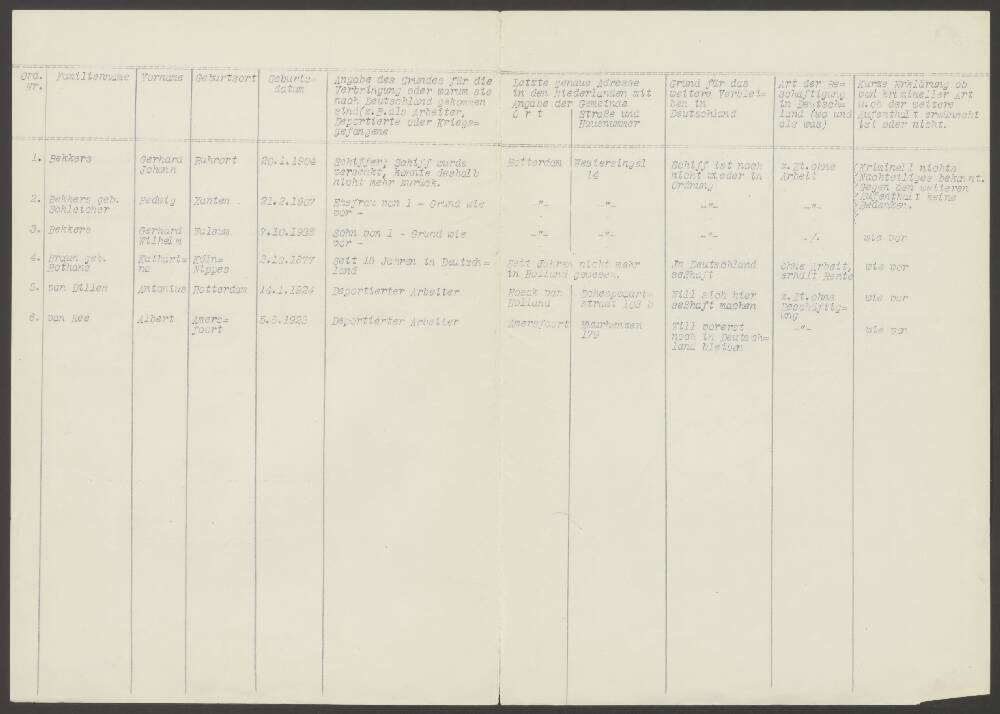 Ord. Nr.
Familienname
Vorname
Geburtsort
Geburts=
datum
Angabe des Grundes für die
Verbringung oder warum sie
nach Deutschland gekommen
sind(z.B.als Arbeiter,
Deportierte oder Kriegs=
gefangene
Letzte genaue Adresse
in den Niederlanden mit
Angabe der Gemeinde
O r t
Straße und
Hausnummer
Grund für das
weitere Verblei=
ben in
Deutschland
Art der Be=
schäftigung
in Deutsch=
land (wo und
als was)
Kurze Erklärung ob
von krimineller Art
u.ob der weitere
Aufenthalt erwünscht
ist oder nicht.
1. Bekkers
Gerhard
Johann
Ruhrort
20.1.1904
Schiffer; Schiff wurde
versenkt, konnte deshalb
nicht mehr zurück.
Rotterdam
Westersingel
14
Schiff ist noch
nicht wieder in
Ordnung
z.Zt.ohne
Arbeit
(Kriminell nichts
(Nachteiliges bekannt.
(Gegen den weiteren
(Aufenthalt keine
(Bedenken.
2. Bekkers geb.
Schleicher
Hedwig
Xanten
21.2.1907
Ehefrau von 1 - Grund wie
vor -
-"-
-"-
-"-
-"-
3. Bekkers
Gerhard
Wilhelm
Walsum
7.10.1933
Sohn von 1 - Grund wie
vor -
-"-
-"-
-"-
./.
wie vor
4. Braun geb.
Kathari=
na
Köln=
Nippes
3.10.1877
Seit 18 Jahren in Deutsch=
land
Seit Jahren nicht mehr
in Holland gewesen.
In Deutschland
seßhaft
ohne Arbeit,
erhält Rente
wie vor
5. van Dillen
Antonius
Rotterdam
14.1.1924
Deportierter Arbeiter
Hoeck van
Holland
103 b
Will sich hier
seßhaft machen
z.Zt.ohne
Beschäftig=
ung
wie vor
6. van Ree
Albert
Amers=
foort
5.5.1923
Deportierter Arbeiter
Amersfoort
179
Will vorerst
noch in Deutsch=
land bleiben
-"-
wie vor